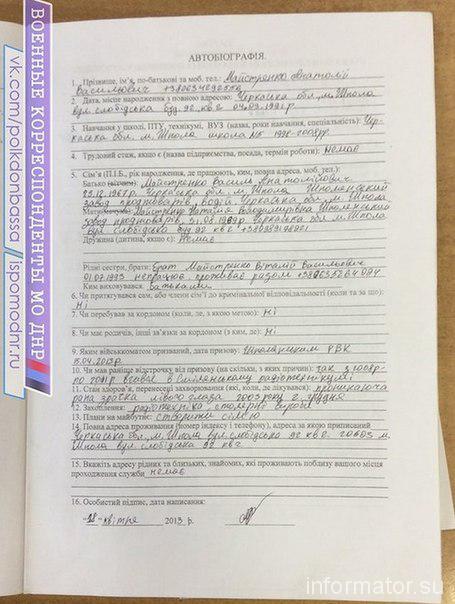 АВТОБІОГРАФІЯ.
1. Прізвище, ім'я, по-батькові та моб. тел.: Майстренко Анатолій
Васильович
2. Дата, місце народження з повною адресою: Черкаська обл., м. Шпола
вул. слобідська буд. 92 кв 2
3. Навчання у школі, ПТУ, технікумі, ВУЗ (назва, роки навчання, спеціальність): Чер-
каська обл. м. Шпола школа №5
4. Трудовий стаж, якщо є (назва підприємства, посада, термін роботи): Немає
5. Сім'я (П.І.Б., рік народження, де працюють, ким, повна адреса, моб. тел.):
Батько (вітчим): Майстренко Василь Анатолійович
Черкаська обл. м. Шпола Шполянський
завод продтоварів, водій. Черкаська обл. м. Шпола
Майстренко Наталія Володимирівна Шполянський
завод продтоварів, Черкаська обл м. Шпола
Вул слобідська буд 92 кв 2
Дружина (дитина, якщо є): Немає
Рідні сестри, брати: Брат Майстренко Віталій Васильович
01.07.1993 непрацює, проживає разом
Ким виховувався: Батьками
6. Чи притягувався сам, або члени сім'ї до кримінальної відповідальності (коли та за що):
Ні
7. Чи перебував за кордоном (коли, де, з якою метою): Ні
8. Чи має родичів, інші зв'язки за кордоном (з ким, де): Ні
9. Яким військкоматом призваний, дата призову: Шполянським РВК
10. Чи мав раніше відстрочку від призову (на скільки, з яких причин): так з 2008р-
11. Стан здоров'я, перенесені захворювання (які, коли, де лікувались): проникаюча
12. Захоплення: радіотехніка столярні вироби
13. Плани на майбутнє: створити сім'ю
14. Повна адреса проживання (номер індексу і телефону), адреса за якою приписаний
Черкаська обл., м. Шпола вул слобідська 92 кв 2. 20603 м.
Шпола вул слобідська 92 кв 2
15. Вкажіть адресу рідних та близьких, знайомих, які проживають поблизу вашого місця
проходження служби немає
16. Особистий підпис, дата написання:
квітня 2013 р.
ВОЕННЫЕ КОРРЕСПОНДЕНТЫ МО ДНР
vk.com/polkdonbassa
ispomodnr.ru
informator.su